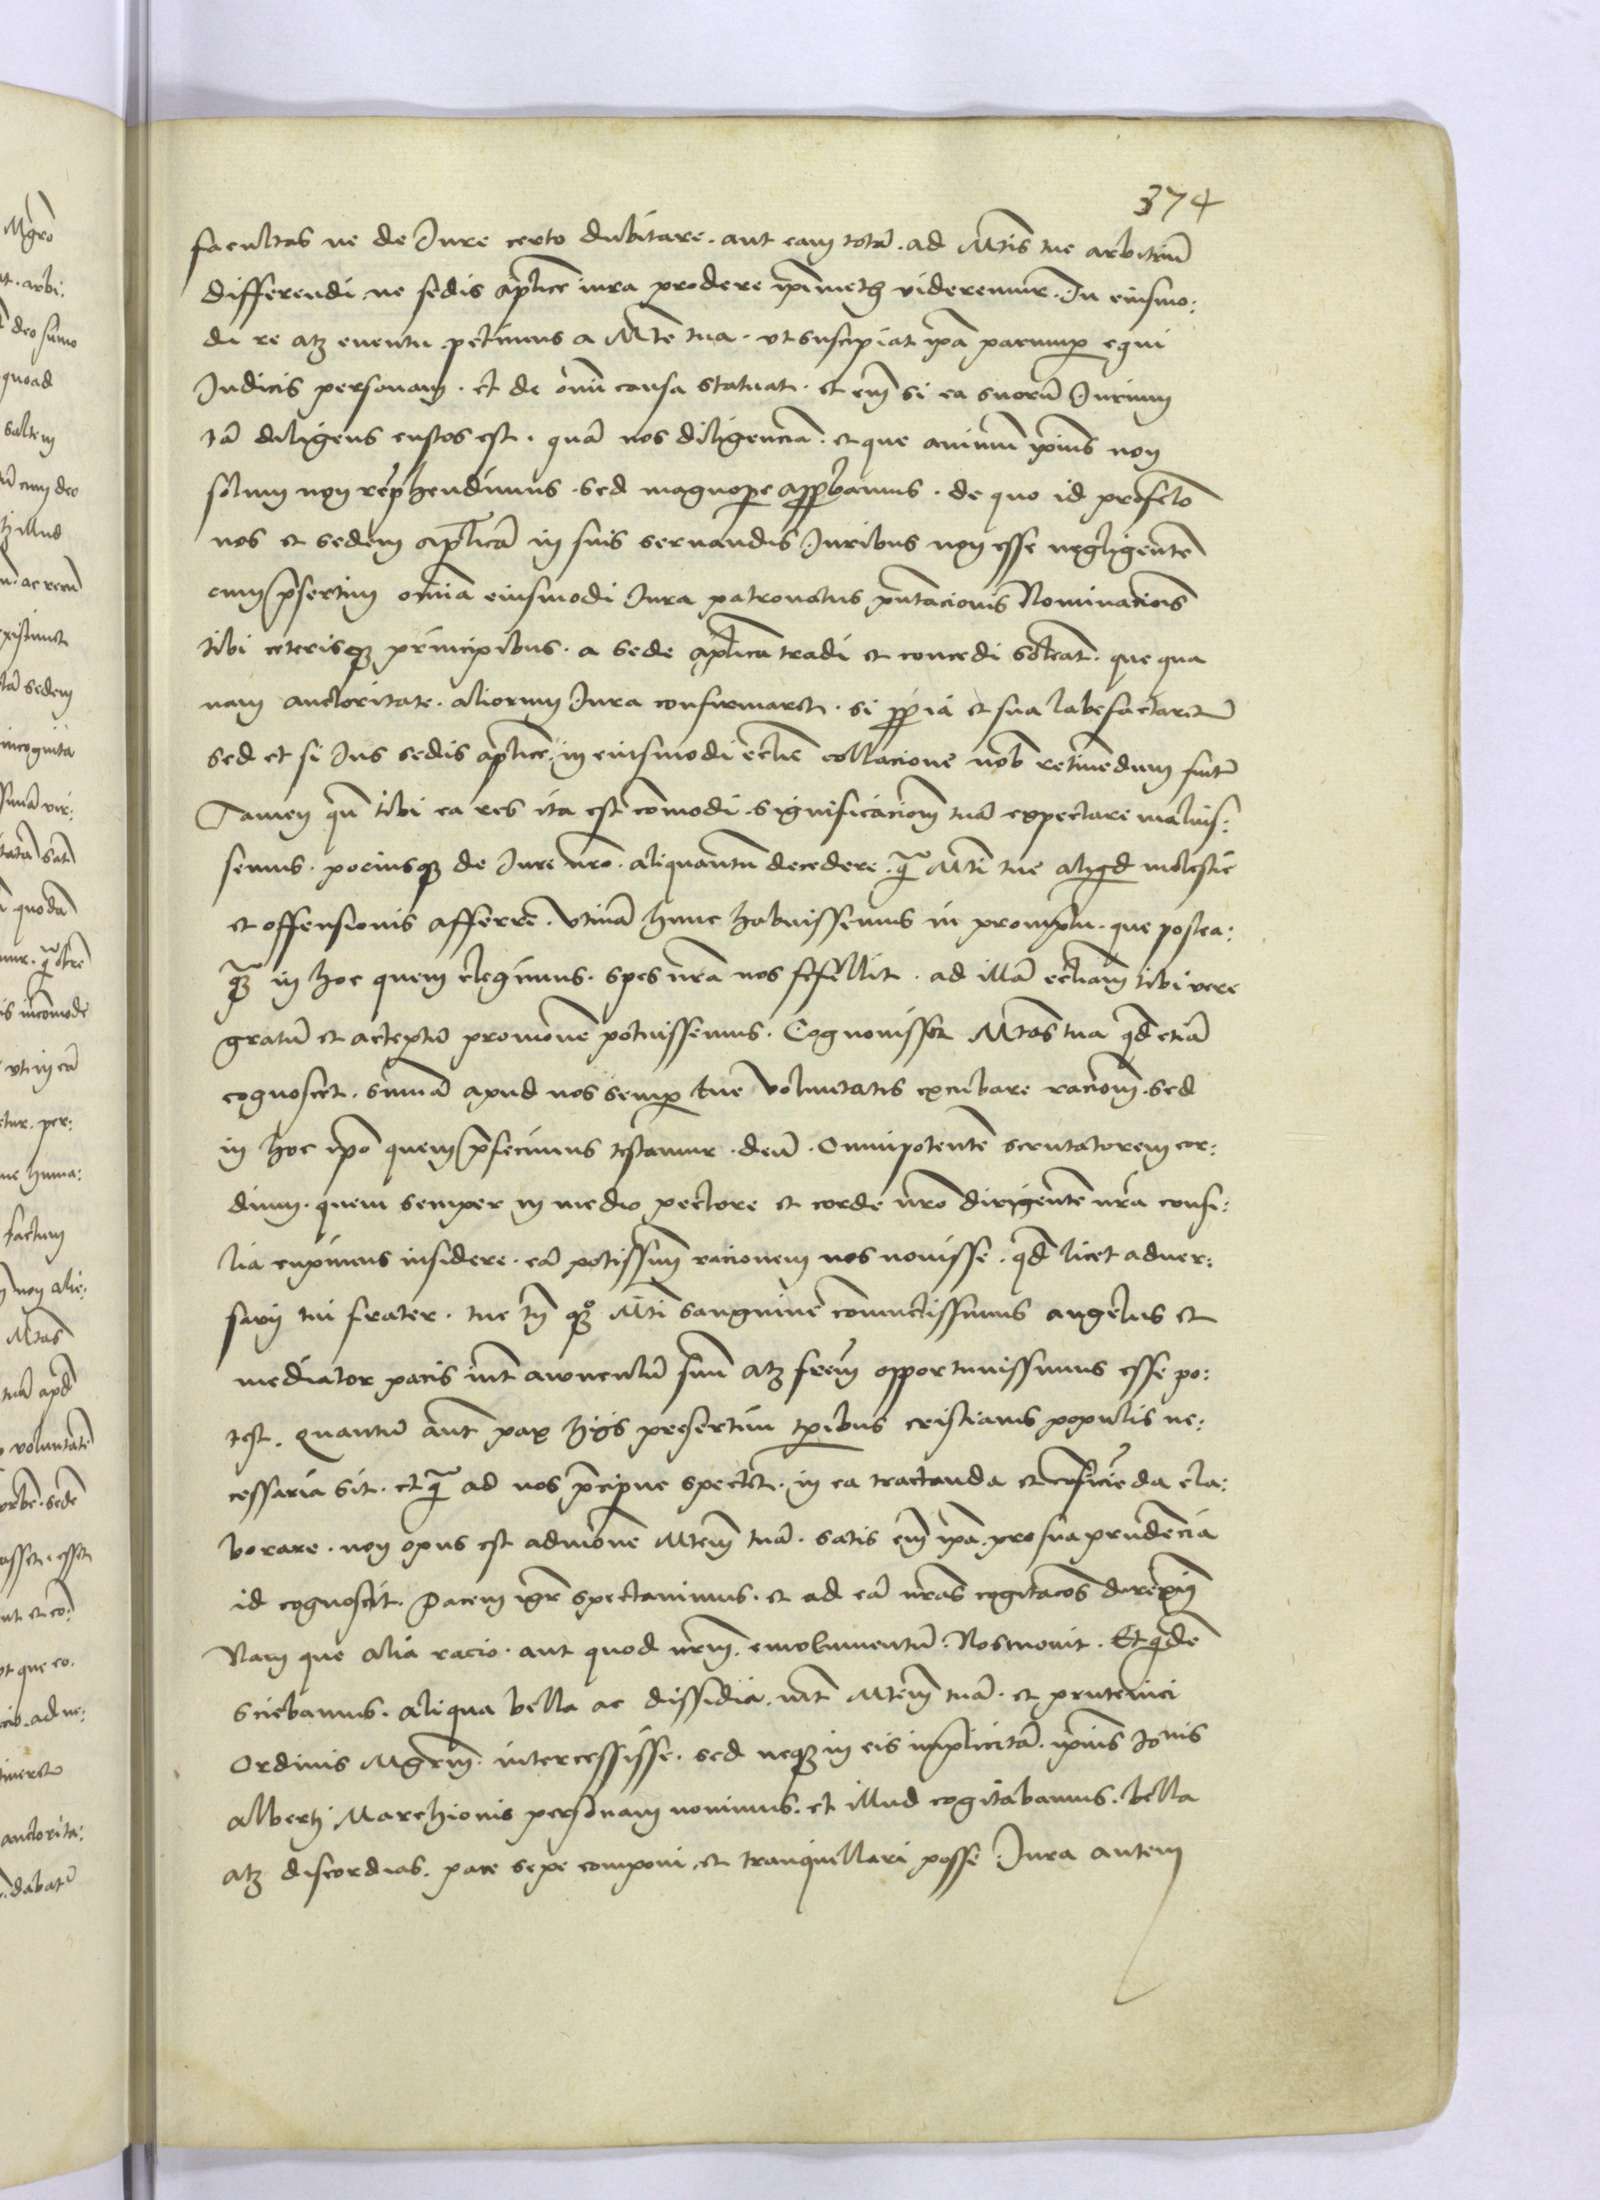 374
facultas ne de Jure certo dubitare. aut eam totā. ad Mtis tue arbitriū
differendi ne sedis aplice iura prodere ipimetz videremur. In eiusmo:
di re atz euentu petimus a Mte tua. vt suscipiat ipā parumper equi
Judicis personam. et de omi causa statuat. et em si ea suorū Jurium
tā diligens custos est. quā nos diligenciā. et que animū ipius non
solum non rephendimus. sed magnopere approbamus. de quo id profecto
nos et sedem aplicā in suis seruandis Juribus non esse negligente
cum psertim omia eiusmodi Jura patronatus pntacionis Nominacionis
tibi ceterisq principibus. a sede aplica tradi et concedi soleat. que qua
nam auctoritate. aliorum Jura confirmaret. si ppria et sua labefactaret
sed et si Jus sedis aplice. in eiusmodi ecclie collacione nob retinedum fuit
Tamen qm tibi ea res ita est comodi. significaciom tuā expectare maluis:
semus. pociusq de Jure nro. aliquantum decedere. q Mti tue aliqd molestie
et offensionis afferre. Vtinā hunc habuissemus in promptu. que postea:
q in hoc quem elegimus. spes nra nos fefellit. ad illā eccliam tibi vere
gratū et acceptū promoue potuissemus. Cognouisset Mtas tua qd etiā
cognoscet. summā apud nos semp tue Voluntatis excubare raciom. sed
in hoc ipo quem pfecimus testamur. deū. Omnipotente scrutatorem cor:
dium. quem semper in medio pectore et corde nro dirigente nra consi:
lia cupimus insidere. eā potissimū racionem nos nouisse. qd licet aduer:
sarij tui frater. tue tn qq Mti sanguine coniunctissimus angelus et
mediator pacis int auunculū suū atz frem opportunissimus esse po:
test. Quantū aut pax hijs presertim tpibus cristianis populis ne:
cessaria sit. et q ad nos pcipue spectet. in ea tractanda et coficieda ela:
borare. non opus est admone Mtem tuā. satis em ipa. pro sua prudencia
id cognoscit. Pacem igr spectauimus. et ad eā nras cogitacoes direximus
Nam que alia racio. aut quod nrm. emolumentū. Nos mouit. Et qde
Sciebamus. aliqua bella ac dissidia. int Mtem tuā. et prutenici
Ordinis Mgrm. intercessisse. sed neq in eis implicitā. ipius Jonis
alberti Marchionis personam nouimus. et illud cogitabamus. bella
atz discordias. pace sepe componi et tranquillari posse Jura autem